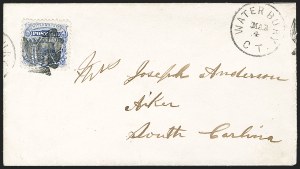 WATERBURY
MAR
4
CT.
POST
Mrs Joseph Anderson
Aiker
South Carlina